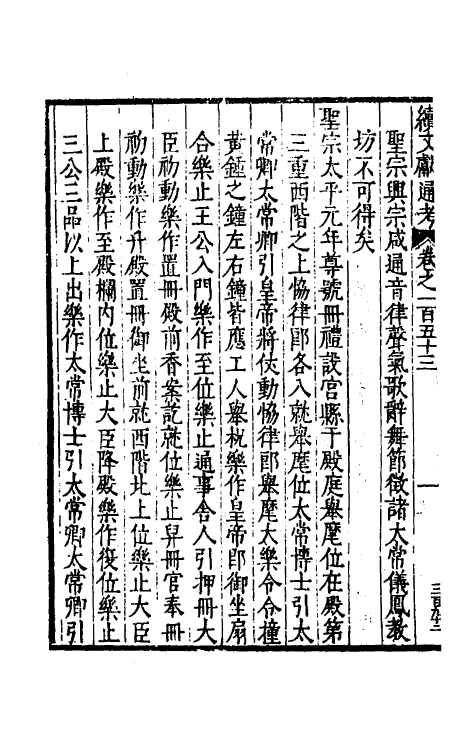 續文獻通考 卷之一百五十三 一
聖宗興宗咸通音律聲氣歌辭舞節徵諸太常儀鳳教
坊不可得矣
聖宗太平元年尊號冊禮設宮縣于殿庭舉麾位在殿第
三重西階之上恊律郎各入就舉麾位太常博士引太
常卿太常卿引皇帝將仗動恊律郎舉麾大樂令令撞
黃鍾之鐘左右鐘皆應工人舉柷樂作皇帝即御坐扇
合樂止王公入門樂作至位樂止通事舍人引押冊大
臣初動樂作置冊殿前香案訖就位樂止舁冊官奉冊
初動樂作升殿置冊御坐前就西階北上位樂止大臣
上殿樂作至殿欄內位樂止大臣降殿樂作復位樂止
三公三品以上出樂作太常博士引太常卿太常卿引